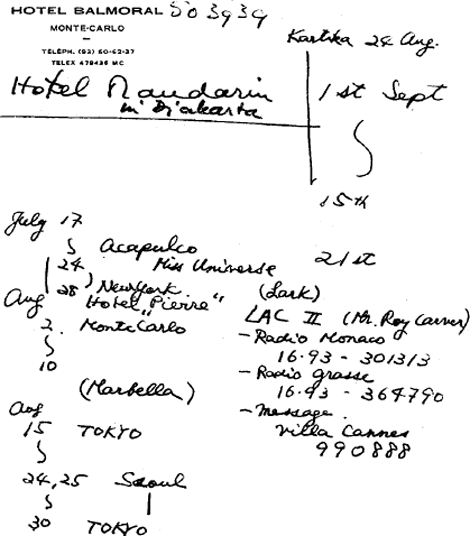 HOTEL BALMORAL 503939
MONTE-CARLO
TÉLÉPH. (93) 50-62-37
TELEX 479436 MC
Hotel Mandarin
in Djakarta
Kartika 24 Aug.
1st Sept
15th
21st
July 17
24
Acapulco
Miss Universe
28 New York
Hotel "Pierre"
Aug
2. Monte Carlo
10
(Marbella)
(Lark)
LAC II (Mr. Roy Carver)
- Radio Monaco
16.93 - 301313
- Radio grasse
16.93 - 364790
- Message.
Villa Cannes
990888
Aug
15 TOKYO
24, 25 Seoul
30 TOKYO